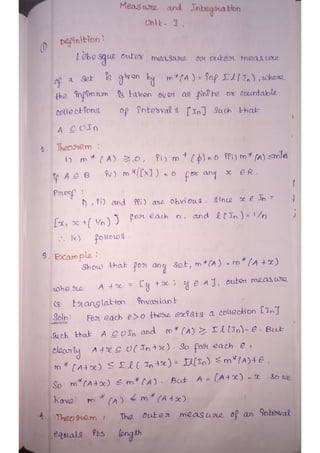 Measure and Integration
Unit - I.
① Definition:
Lebesgue outer measure or outer measure
of a set is given by m*(A) = inf Σl(In), where
the infimum is taken over all finite or countable
collections of intervals [In] such that
A ⊆ ∪In
2. Theorem:
i) m*(A) ≥ 0, ii) m*(φ) = 0 iii) m*(A) ≤ m*(B)
if A ⊆ B iv) m*([x]) = 0 for any x ∈ R.
Proof:
i), ii) and iii) are obvious. since x ∈ In =
[x, x + (1/n)) for each n. and l(In) = 1/n
∴ iv) follows.
3. Example:
Show that for any set, m*(A) = m*(A + x)
where A + x = [y + x : y ∈ A], outer measure
is translation invariant
Soln: For each ε > 0 there exists a collection [In]
such that A ⊆ ∪In and m*(A) ≥ Σl(In) - ε. But
clearly A + x ⊆ ∪(In + x). So for each ε,
m*(A+x) ≤ Σl(In + x) = Σl(In) ≤ m*(A) + ε
So m*(A+x) ≤ m*(A). But A = (A+x) - x so we
have m*(A) ≤ m*(A+x)
4. Theorem: The outer measure of an interval
equals its length